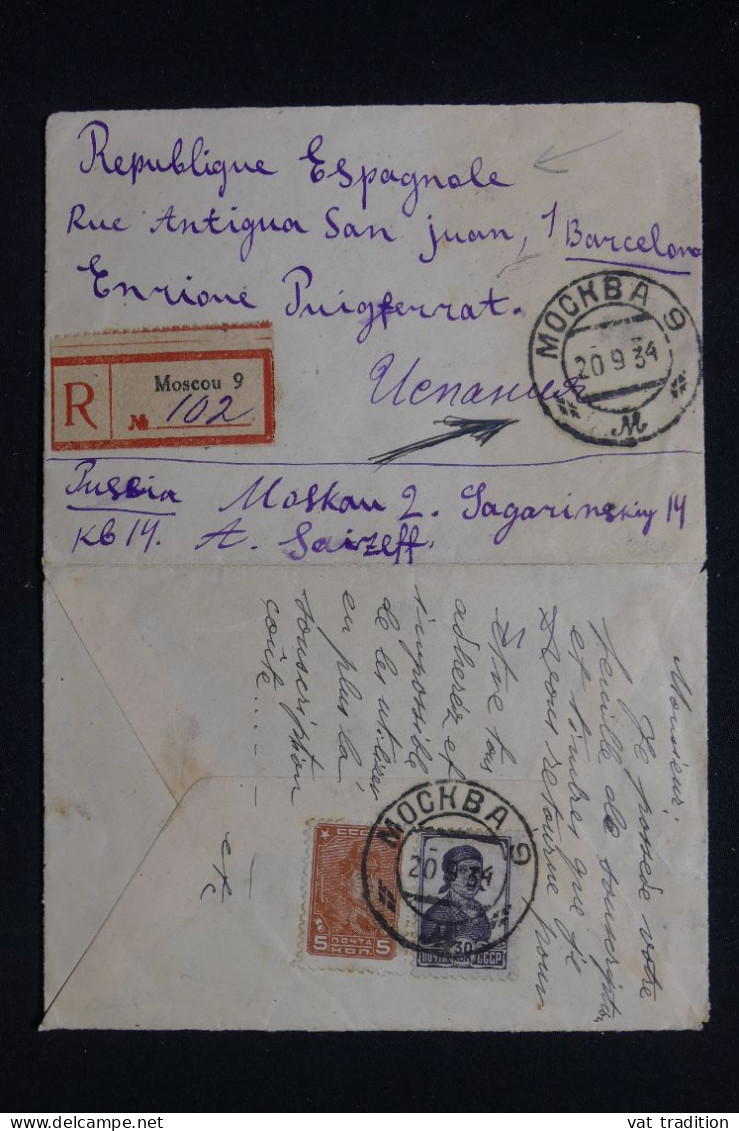 Republique Espagnole
Rue Antigua San juan, 1 Barcelona
Enrione Puigferrat.
Испания
МОСКВА 9
20 9 34
М
R Moscou 9
№ 102
Russia Moskau 2. Gagarinskiy 14
кв 14. A. Saizeff.
Monsieur:
Je possède votre
feuille de souscription
et timbres que je
vous retourne pour
être tous
adherés et
impossible
de les utiliser
en plus la
souscription
coûte....
etc
МОСКВА 9
20 9 34
СССР
5 ПОЧТА КОП. 5
30
ПОЧТА КОП. СССР
vat tradition